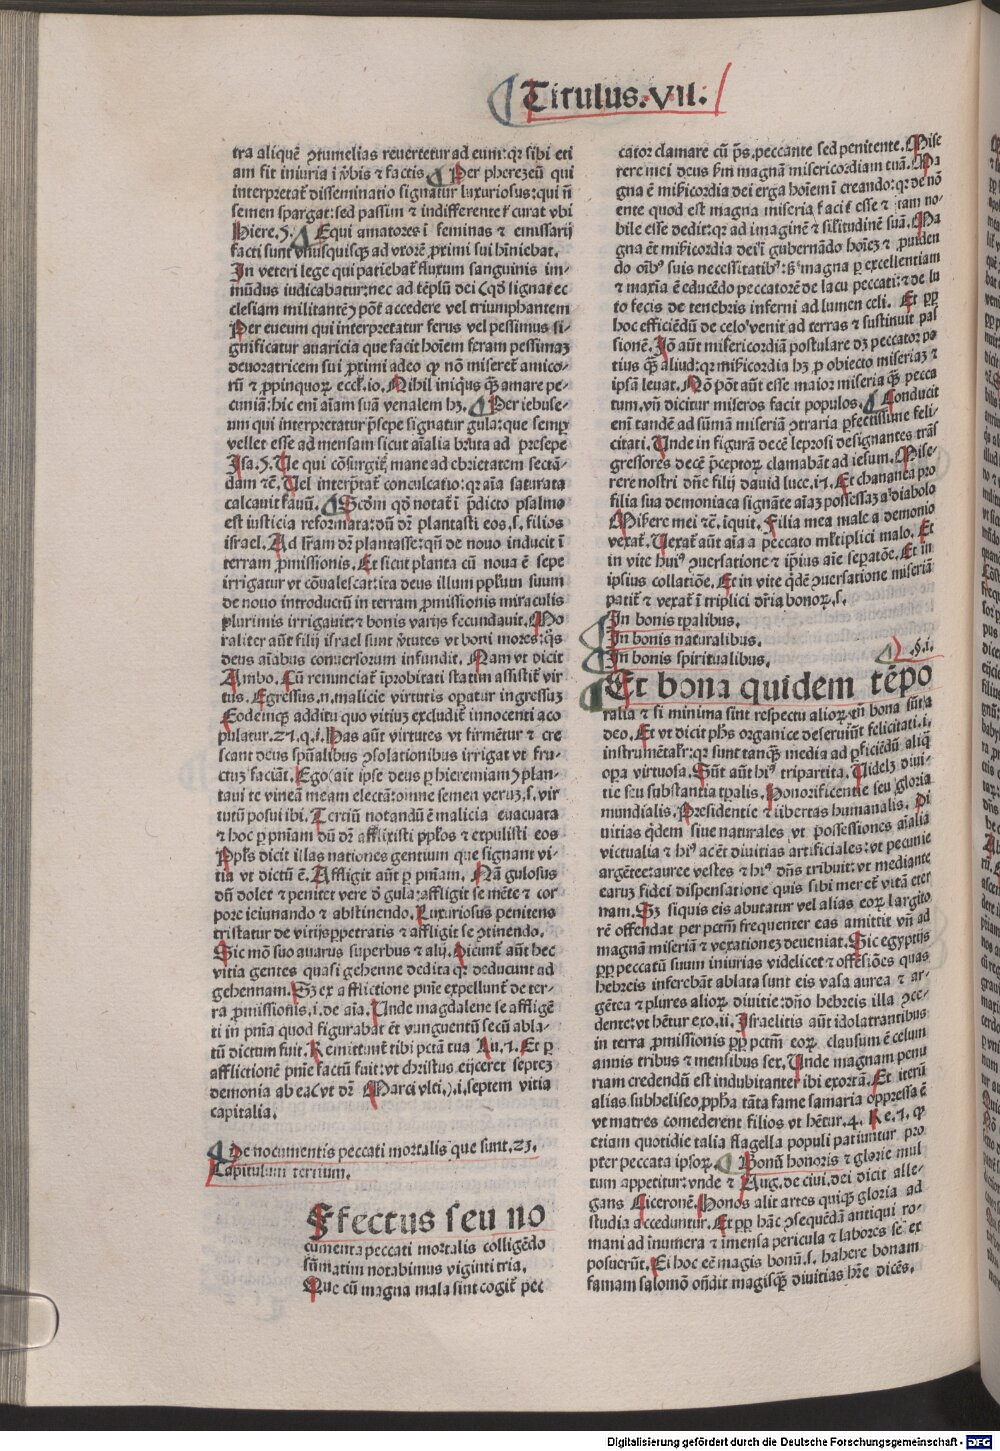 Titulus.VII.
tra aliquē ꝯtumelias reuertetur ad eum: qꝛ sibi eti
am fit iniuria ī v̄bis ⁊ factis. Per pherezeū qui
interpretat᷑ disseminatio signatur luxuriosus: qui n̄
semen spargat: sed passim ⁊ indifferenter curat vbi
Hiere.5. Equi amatores ī feminas ⁊ emissarij
facti sunt vnusquisqꝫ ad vxorē ꝓximi sui hīniebat.
In veteri lege qui patiebat᷑ fluxum sanguinis im-
mūdus iudicabatur: nec ad tēplū dei (qd̄ signat ec
clesiam militantē) pōt accedere vel triumphantem
Per eueum qui interpretatur ferus vel pessimus si-
gnificatur auaricia que facit hoīem feram pessimaꝫ
deuoratricem sui ꝓximi adeo ꝙ nō miseret᷑ amico-
rū ⁊ ꝓpinquoꝝ. eccl̄.io. Nihil iniqus qꝫ̄ amare pe-
cuniā: hic enī aīam suā venalem hꝫ. Per iebuse-
um qui interpretatur p̄sepe signatur gula: que semp̱
vellet esse ad mensam sicut aīalia bruta ad presepe
Isa.5. Ue qui cōsurgit᷑ mane ad ebrietatem sectā-
dam ⁊c̄. Uel interp̄tat᷑ conculcatio: qꝛ aīa saturata
calcauit fauū. Scd̄m qd̄ notat᷑ ī p̄dicto psalmo
est iusticia reformata: dū dꝛ̄ plantasti eos.s. filios
israel. Ad lr̄am dꝛ̄ plantasse: qn̄ de nouo inducit ī
terram ꝓmissionis. Et sicut planta cū noua ē sepe
irrigatur vt cōualescat: ita deus illum ppl̄um suum
de nouo introductū in terram ꝓmissionis miraculis
plurimis irrigauit: ⁊ bonis varijs fecundauit. Mo
raliter aūt filij israel sunt v̄tutes vt boni mores: q̄s
deus aīabus conuersorum infundit. Nam vt dicit
Ambo. Cū renunciat᷑ īprobitati statim assistit᷑ vir
tus. Egressus.n. malicie virtutis opatur ingressuꝫ
Eodeinqꝫ additu quo vitiuꝫ excludit᷑ innocenti aco
pulatur.21.q.i. Has aūt virtutes vt firmētur ⁊ cre
scant deus spūalibus ꝯsolationibus irrigat vt fru-
ctuꝫ faciāt. Ego (ait ipse deus ꝑ hieremiam) plan-
taui te vineā meam electā: omne semen veruꝫ.s. vir
tutū posui ibi. Tertiū notandū ē malicia euacuata
⁊ hoc ꝑ pn̄iam dū dꝛ̄ afflixisti ppl̄os ⁊ expulisti eos
Ppl̄s dicit illas nationes gentium que signant vi-
tia vt dictū ē. Affligit aūt ꝑ pn̄iam. Nā gulosus
dū dolet ⁊ penitet vere ð gula: affligit se mēte ⁊ cor
pore ieiunando ⁊ abstinendo. Luxuriosus penitens
tristatur de vitijs ꝑpetratis ⁊ affligit se ꝯtinendo.
Sic mō suo auarus superbus ⁊ alij. Dicunt᷑ aūt hec
vitia gentes quasi gehenne dedita qꝛ deducunt ad
gehennam. Sꝫ ex afflictione pn̄ie expellunt᷑ de ter-
ra ꝓmissionis.i. de aīa. Unde magdalene se affligē
ti in pn̄ia quod figurabat ēt vnguentū secū abla-
tū dictum fuit. Remittunt᷑ tibi pctā tua Lu.7. Et ꝑ
afflictionē pn̄ie factū fuit: vt christus eijceret septeꝫ
demonia ab ea (vt dꝛ̄ Marci vlti.).i. septem vitia
capitalia.
De nocumentis peccati mortalis que sunt.23.
Capitulum tertium.
Effectus seu no
cumenta peccati mortalis colligēdo
sūmatim notabimus viginti tria.
Que cū magna mala sint cogit᷑ pec
cator clamare cū ps̄. peccante sed penitente. Mise
rere mei deus s̄m magnā misericordiam tuā. Ma
gna ē mīcordia dei erga hoīem ī creando: qꝛ de nō
ente quod est magna miseria facit᷑ esse ⁊ tam no-
bile esse dedit: qꝛ ad imaginē ⁊ sil̄itudinē suā. Ma
gna ēt mīcordia dei ī gubernādo hoīeꝫ ⁊ ꝓuiden
do oībꝰ suis necessitatibꝰ: sꝫ magna ꝑ excellentiam
⁊ maxīa ē educēdo peccatorē de lacu peccati: ⁊ de lu
to fecis de tenebris inferni ad lumen celi. Et ꝓp̱
hoc efficiēdū de celo venit ad terras ⁊ sustinuit pas
sionē. Iō aūt misericordiā postulare dꝫ peccator po
tius qꝫ̄ aliud: qꝛ mīcordia hꝫ ꝓ obiecto miseriaꝫ ⁊
ipsā leuat. Nō pōt aūt esse maior miseria qꝫ̄ pecca
tum. vn̄ dicitur miseros facit populos. Conducit
enī tandē ad sūmā miseriā ꝯtraria ꝑfectissime feli-
citati. Unde in figurā decē leprosi designantes trās
gressores decē p̄ceptoꝝ clamabāt ad iesum. Mise-
rere nostri dn̄e fili dauid luce.17. Et chananea pro
filia sua demoniaca signāte aīaꝫ possessaꝫ a diabolo
Miserere mei ⁊c̄. inquit. Filia mea male a demonio
vexat᷑. Uexat᷑ aūt aīa a peccato mlt̄iplici malo. Et
in vite huiꝰ ꝯuersatione ⁊ ipsius aīe sepatōe. Et in
ipsius collatiōe. Et in vite qd̄ē ꝯuersatione miseriā
patit᷑ ⁊ vexat᷑ ī triplici dr̄ia bonoꝝ.s.
In bonis tpalibus.
In bonis naturalibus.
In bonis spiritualibus. §.i.
Et bona quidem tēpo
ralia ⁊ si minima sint respectu alioꝝ tn̄ bona sūt a
deo. Et vt dicit phs̄ organice deseruiūt felicitati.i.
instrumētalr̄: qꝛ sunt tanqꝫ media ad ꝑficiēdū aliq̄
opa virtuosa. Sūt aūt hiꝰ tripartita. Uidelꝫ diui-
tie seu substantia tpalis. Honorificentie seu gloria
mundialis. Presidentie ⁊ libertas humanalis. Di
uitias qd̄em siue naturales vt possessiones aīalia
victualia ⁊ hiꝰ ac ēt diuitias artificiales: vt pecunie
argētee: auree vestes ⁊ hiꝰ dn̄s tribuit: vt mediante
earuꝫ fidei dispensatione quis sibi meret᷑ vitā eter
nam. Sꝫ siquis eis abutatur vel alias eoꝝ largito
rē offendat per pctm̄ frequenter eas amittit vn̄ ad
magnā miseriā ⁊ vexationeꝫ deueniat. Sic egyptijs
ꝓp̱ peccatū suum iniurias videlicet ⁊ offēsiōes quas
hebreis inferebāt ablata sunt eis vasa aurea ⁊ ar-
gētea ⁊ plures alioꝝ diuitie: dn̄o hebreis illa ꝯce-
dente: vt hētur exo.ii. Israelitis aūt idolatrantibus
in terra ꝓmissionis ꝓp̱ pctm̄ eoꝝ clausum ē celum
annis tribus ⁊ mensibus sex. Unde magnam penu
riam credendū est indubitanter ibi exortā. Et iterū
alias sub heliseo ꝓpha tāta fame samaria oppressa ē
vt matres comederent filios vt hētur.4. Re.7. ꝙ
etiam quotidie talia flagella populi patiuntur pro
pter peccata ipsoꝝ. Bonū honoris ⁊ glorie mul
tum appetitur: vnde ⁊ Aug. de ciui. dei dicit alle-
gans Ciceronē. Honos alit artes quiqꝫ gloria ad
studia acceduntur. Et ꝓp̱ hāc ꝯsequēdā antiqui ro-
mani ad īnumera ⁊ īmensa pericula ⁊ labores se ex
posuerūt. Ei hoc eē magis bonū.s. habere bonam
famam salomō on̄dit magisqꝫ̄ diuitias hr̄e dicēs.
Digitalisierung gefördert durch die Deutsche Forschungsgemeinschaft - DFG